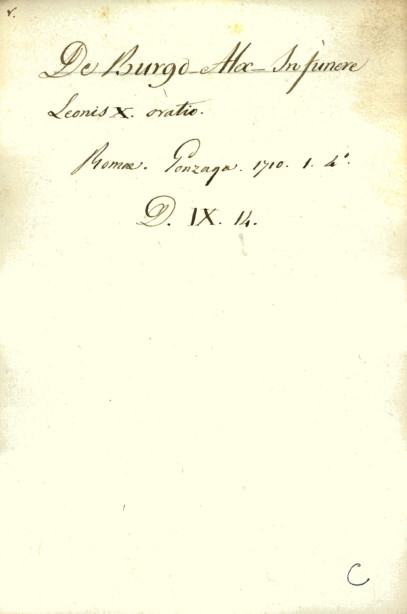 v.
De Burgo Alex In funere
Leonis X. oratio.
Romæ. Gonzaga. 1710. 1. 4°.
D. IX. 14.
C